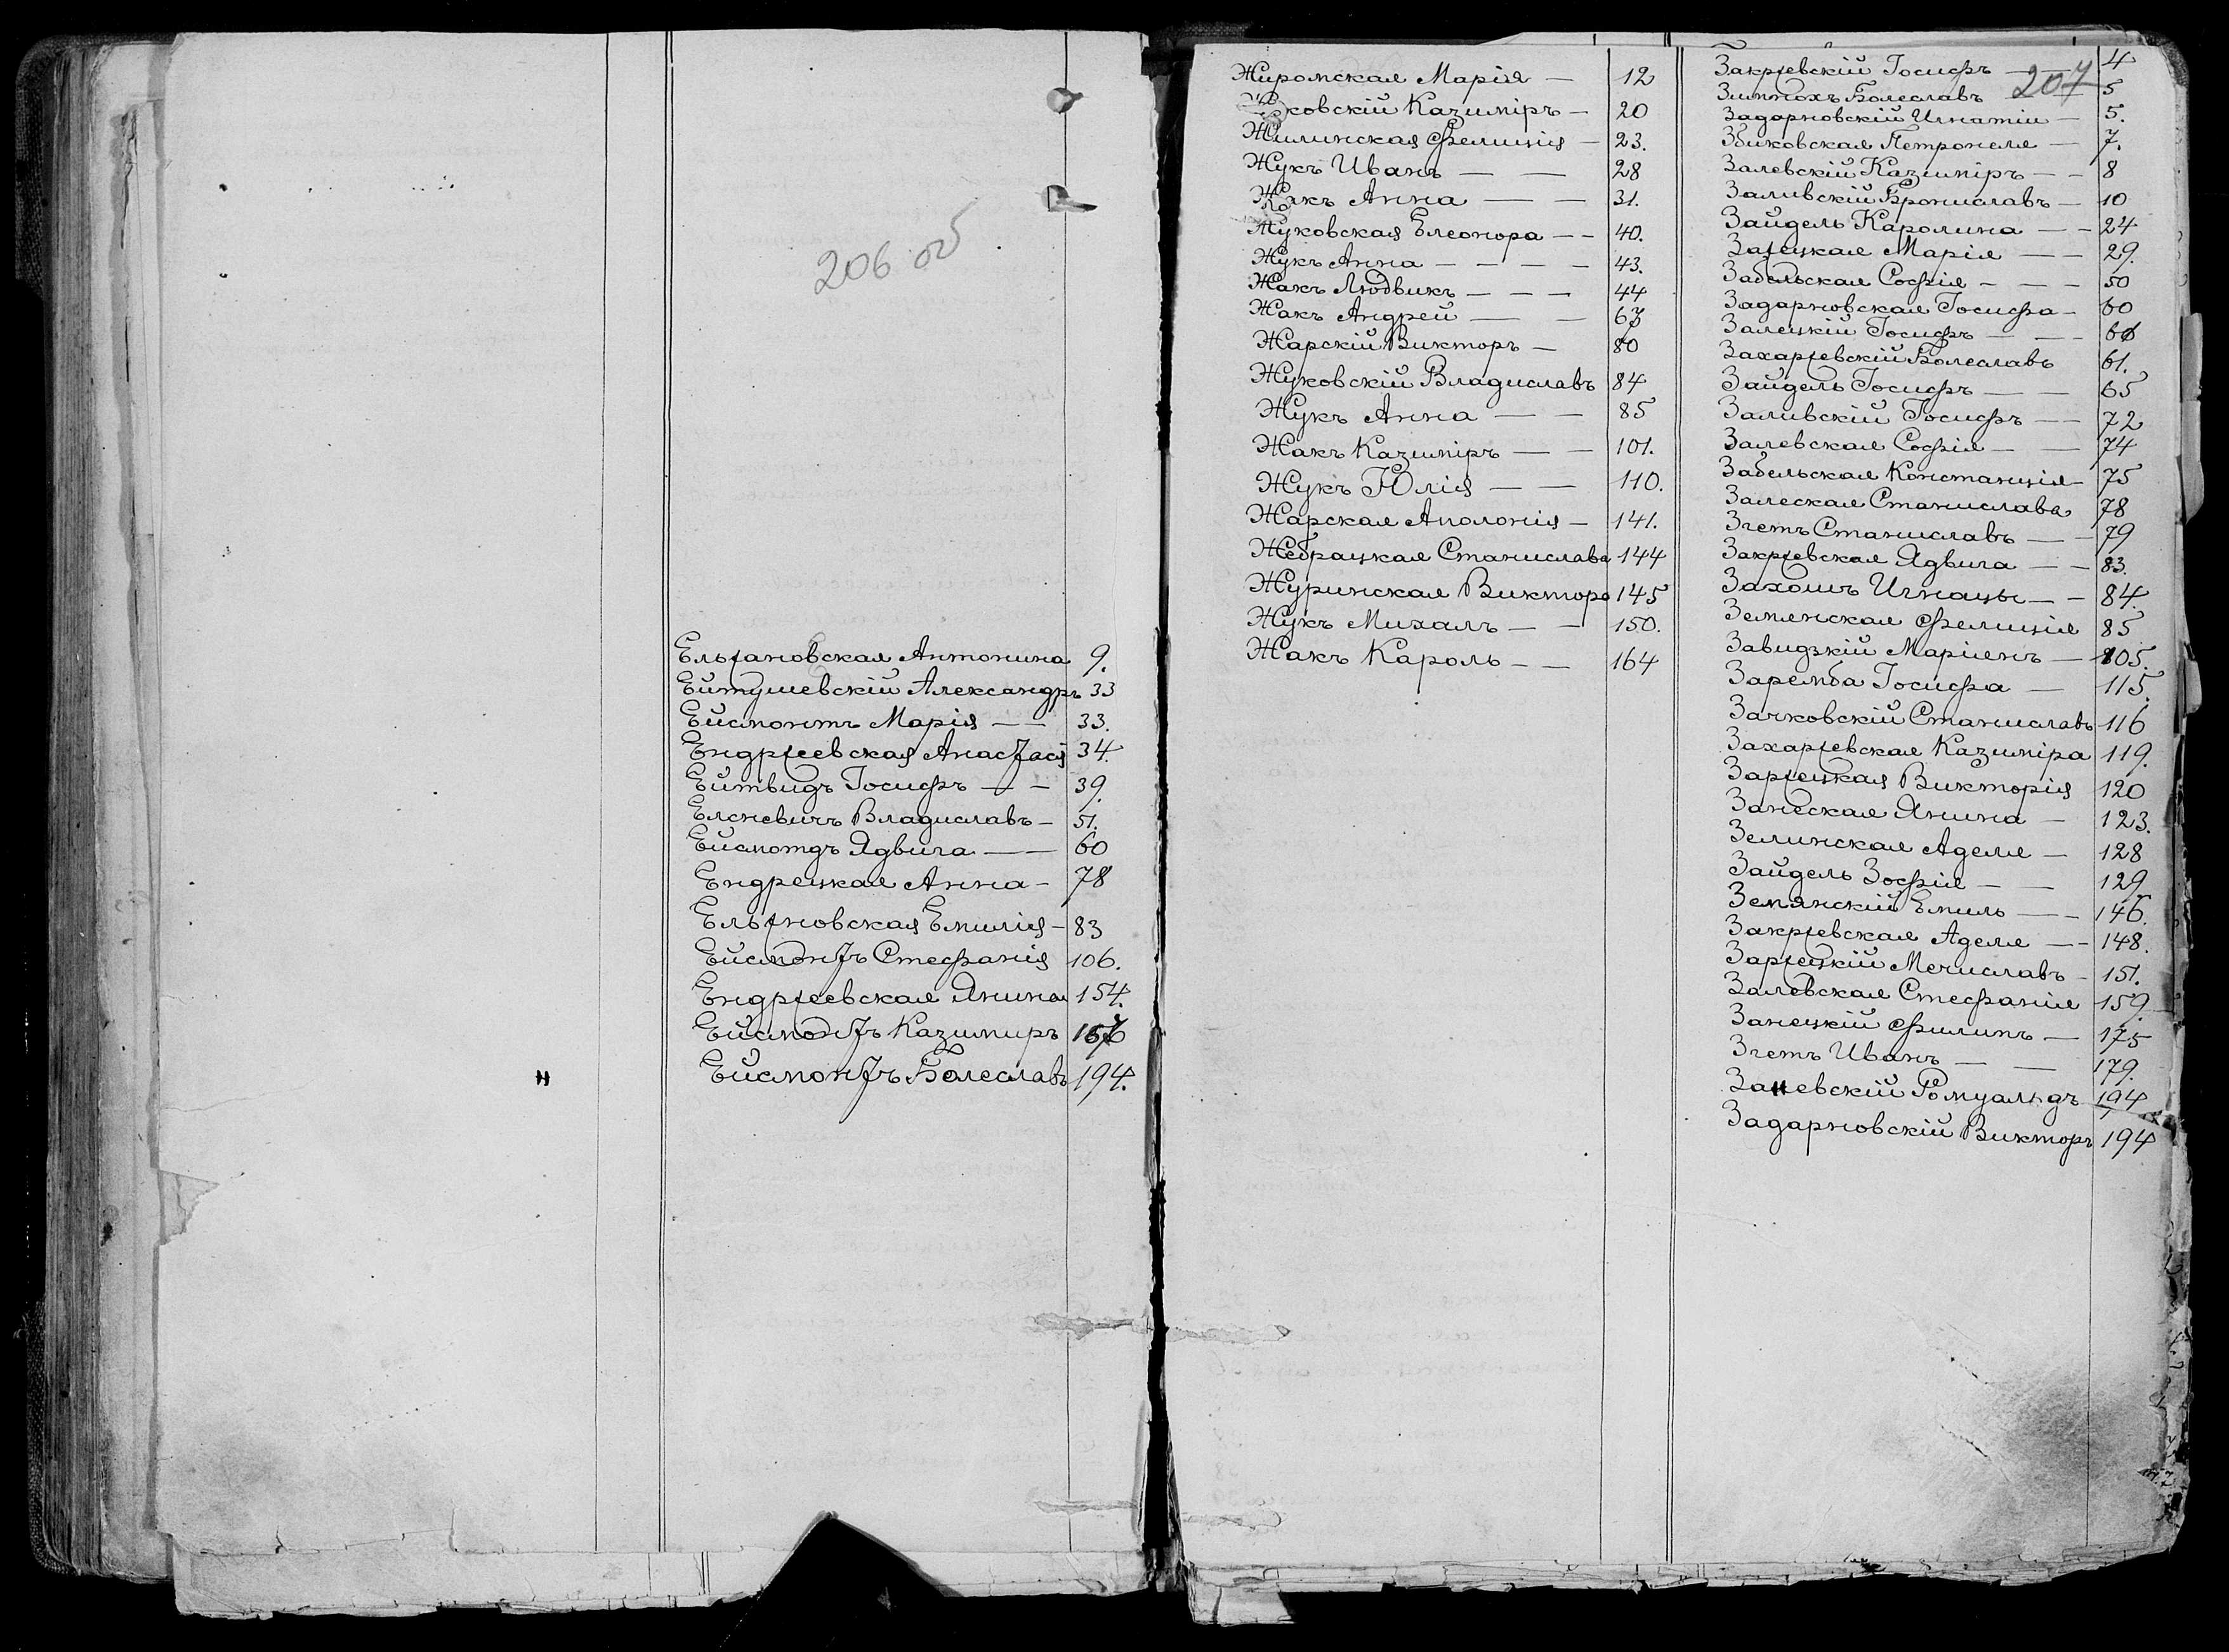 206 об
Ельяновская Антонина 9.
Ейтушевскій Александръ 33
Ейсмонтъ Марія — — 33.
Ендржеевская Анастасія 34.
Ейтвидъ Іосифъ — — 39.
Елсневичъ Владиславъ — 51.
Ейсмотдъ Ядвига — — 60
Ендрецкая Анна — 78
Ельяновская Емилія — 83
Ейсмонтъ Стефанія 106.
Ендржеевская Янина 154.
Ейсмонтъ Казимиръ
Ейсмонтъ Болеславъ 194.
207
Жиромская Марія — 12
Казиміръ — 20
Жилинская Фелиція — 23.
Жукъ Иванъ — — 28
Жакъ Анна — — 31.
Жуковская Елеонора — — 40.
Жукъ Анна — — — — 43.
Жакъ Людвикъ — — — 44
Жакъ Андрей — — 63
Жарскій Викторъ — 80
Жуковскій Владиславъ 84
Жукъ Анна — — 85
Жакъ Казиміръ — — 101.
Жукъ Юлія — — 110.
Жарская Аполонія — 141.
Жебрацкая Станислава 144
Журинская Виктора 145
Жукъ Михалъ — — 150.
Жакъ Кароль — — 164
Закржевскій Іосифъ — 4
Болеславъ 5
Задарновскій Игнатій — 5.
Збиковская Петронеля — 7.
Залевскій Казиміръ — — 8
Заливскій Брониславъ — 10
Зайдель Каролина — — 24
Зажецкая Марія — — 29.
Забельская Софія — — — 50
Задарновская Іосифа — 60
Залецкій Іосифъ — — — 60
Захаржевскій Болеславъ 61.
Зайдель Іосифъ — — 65
Заливскій Іосифъ — — 72
Залевская Софія — — 74
Забельская Констанція — 75
Залеская Станислава 78
Згетъ Станиславъ — — 79
Закржевская Ядвига — — 83.
Захошъ Игнацы — — 84.
Земянская Фелиція 85
Завидзкій Маріянъ — 105.
Заремба Іосифа — 115.
Зачковскій Станиславъ 116
Захаржевская Казиміра 119.
Заржецкая Викторія 120
Занеская Янина — 123.
Зелинская Аделя — 128
Зайдель Зофія — — 129
Земянскій Емиль — — 146.
Закржевская Аделя — — 148.
Заржецкій Мечиславъ — 151.
Залевская Стефанія 159.
Занецкій Филипъ — 175
Згетъ Иванъ — — 179.
Заневскій Ромуальдъ 194
Задарновскій Викторъ 194